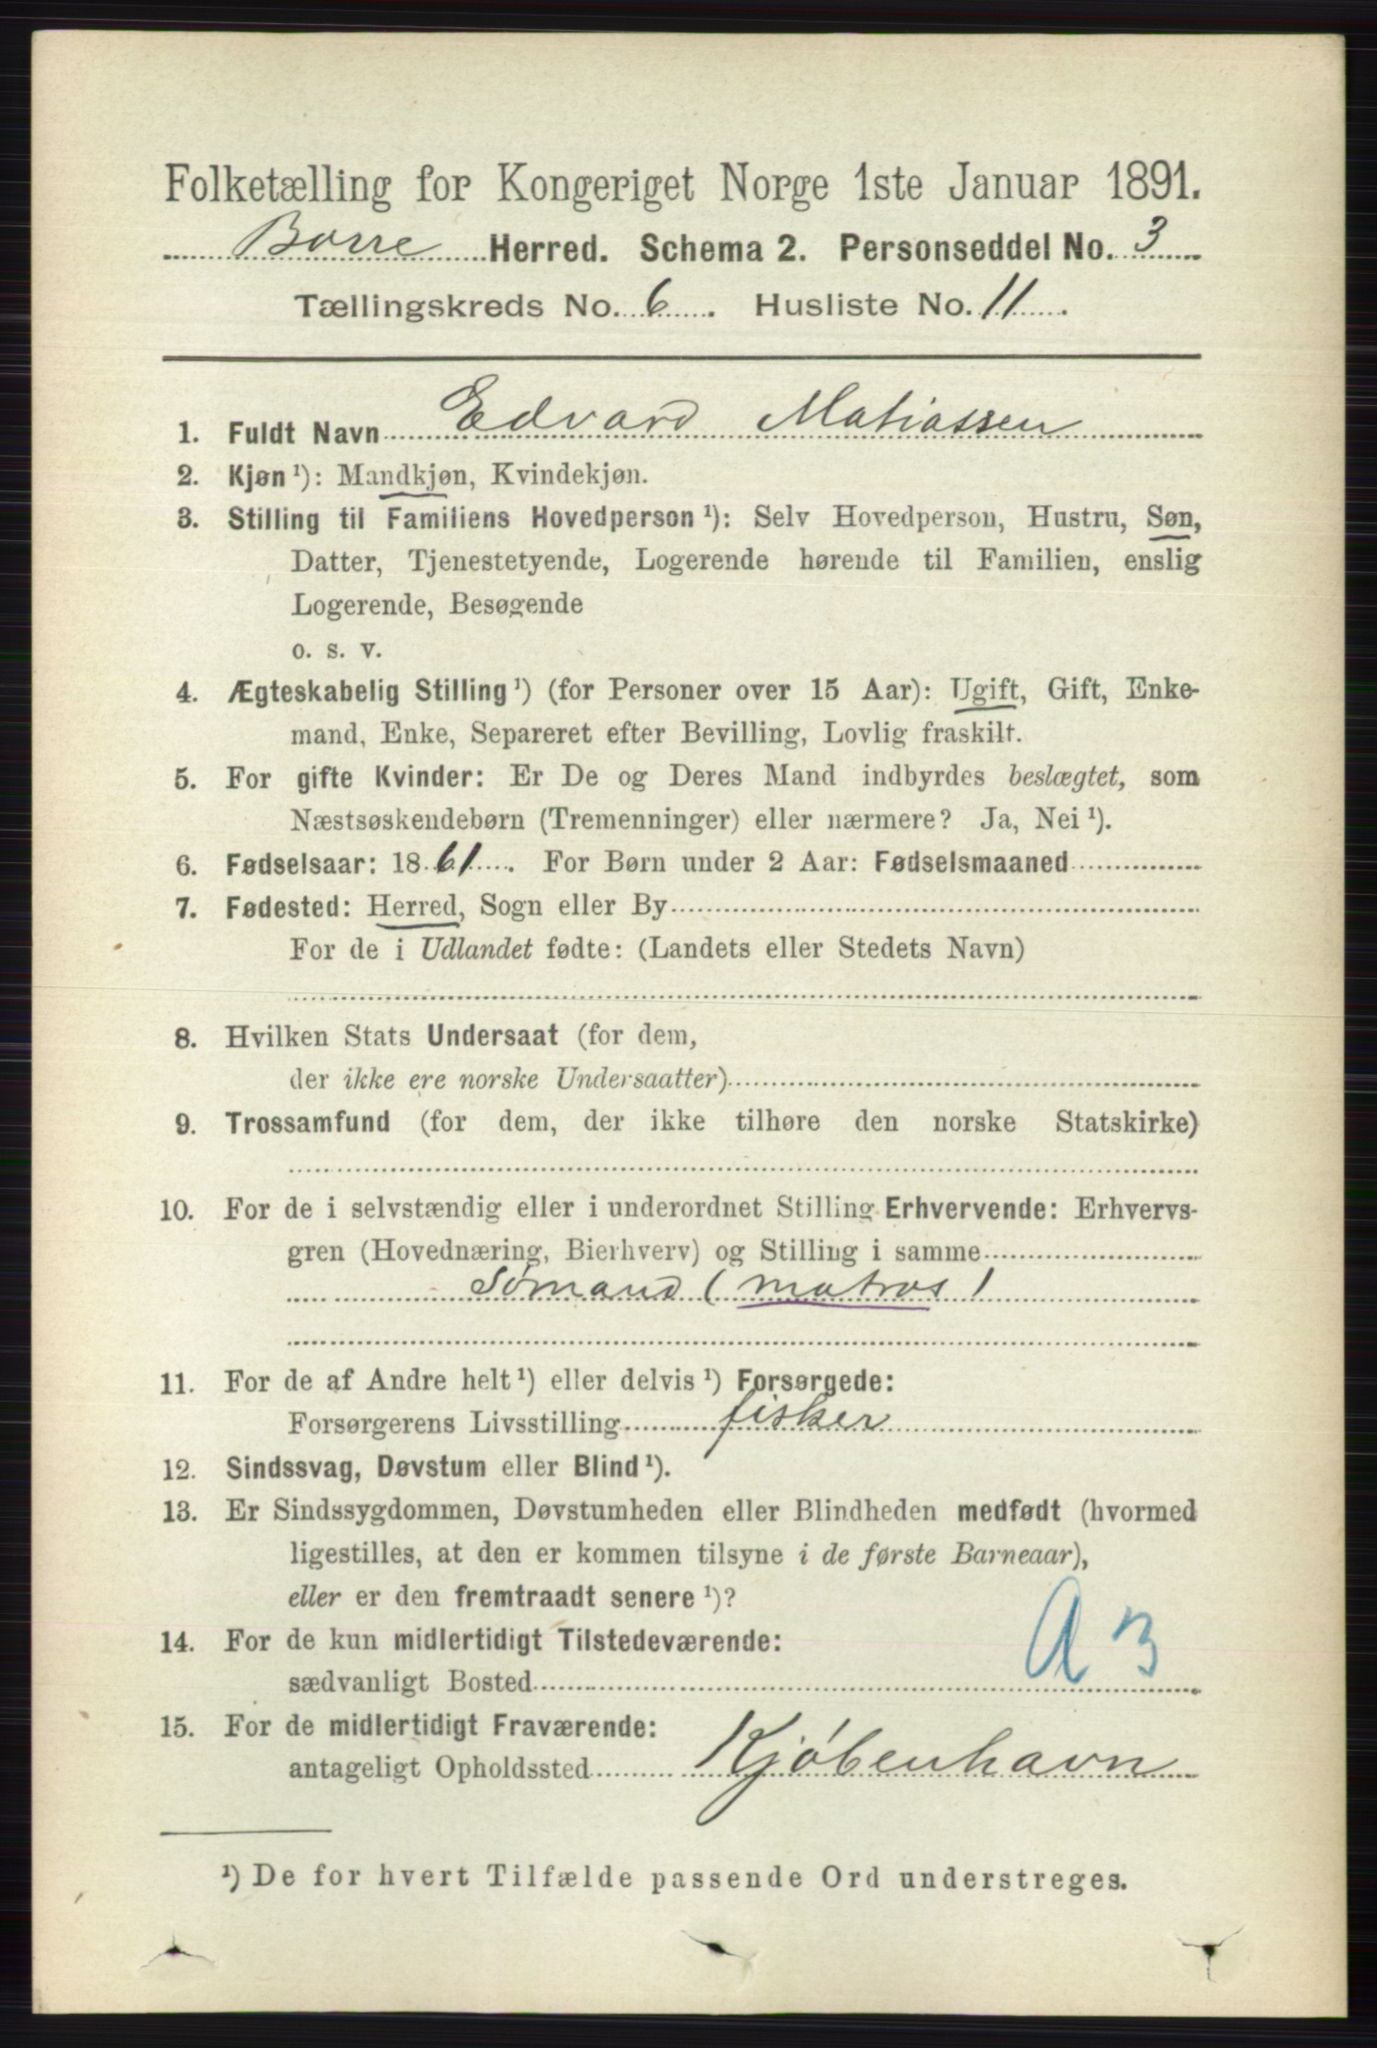 Folketælling for Kongeriget Norge 1ste Januar 1891.
Borre Herred. Schema 2. Personseddel No. 3
Tællingskreds No. 6. Husliste No. 11.
1. Fuldt Navn Edvard Matiassen
2. Kjøn ¹): Mandkjøn, Kvindekjøn.
3. Stilling til Familiens Hovedperson ¹): Selv Hovedperson, Hustru, Søn,
Datter, Tjenestetyende, Logerende hørende til Familien, enslig
Logerende, Besøgende
o. s. v.
4. Ægteskabelig Stilling ¹) (for Personer over 15 Aar): Ugift, Gift, Enke-
mand, Enke, Separeret efter Bevilling, Lovlig fraskilt.
5. For gifte Kvinder: Er De og Deres Mand indbyrdes beslægtet, som
Næstsøskendebørn (Tremenninger) eller nærmere? Ja, Nei ¹).
6. Fødselsaar: 1861. For Børn under 2 Aar: Fødselsmaaned
7. Fødested: Herred, Sogn eller By
For de i Udlandet fødte: (Landets eller Stedets Navn)
8. Hvilken Stats Undersaat (for dem,
der ikke ere norske Undersaatter)
9. Trossamfund (for dem, der ikke tilhøre den norske Statskirke)
10. For de i selvstændig eller i underordnet Stilling Erhvervende: Erhvervs-
gren (Hovednæring, Bierhverv) og Stilling i samme
Sømand (matros)
11. For de af Andre helt ¹) eller delvis ¹) Forsørgede:
Forsørgerens Livsstilling fisker
12. Sindssvag, Døvstum eller Blind ¹).
13. Er Sindssygdommen, Døvstumheden eller Blindheden medfødt (hvormed
ligestilles, at den er kommen tilsyne i de første Barneaar),
eller er den fremtraadt senere ¹)?
14. For de kun midlertidigt Tilstedeværende:
sædvanligt Bosted
A 3
15. For de midlertidigt Fraværende:
antageligt Opholdssted Kjøbenhavn
¹) De for hvert Tilfælde passende Ord understreges.